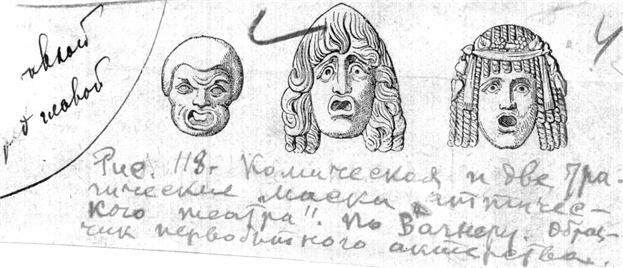 главой
Рис. 118. Комическая и две тра-
гические маски "античес-
кого театра". По Вагнеру. Образ-
чик первобытного актерства.